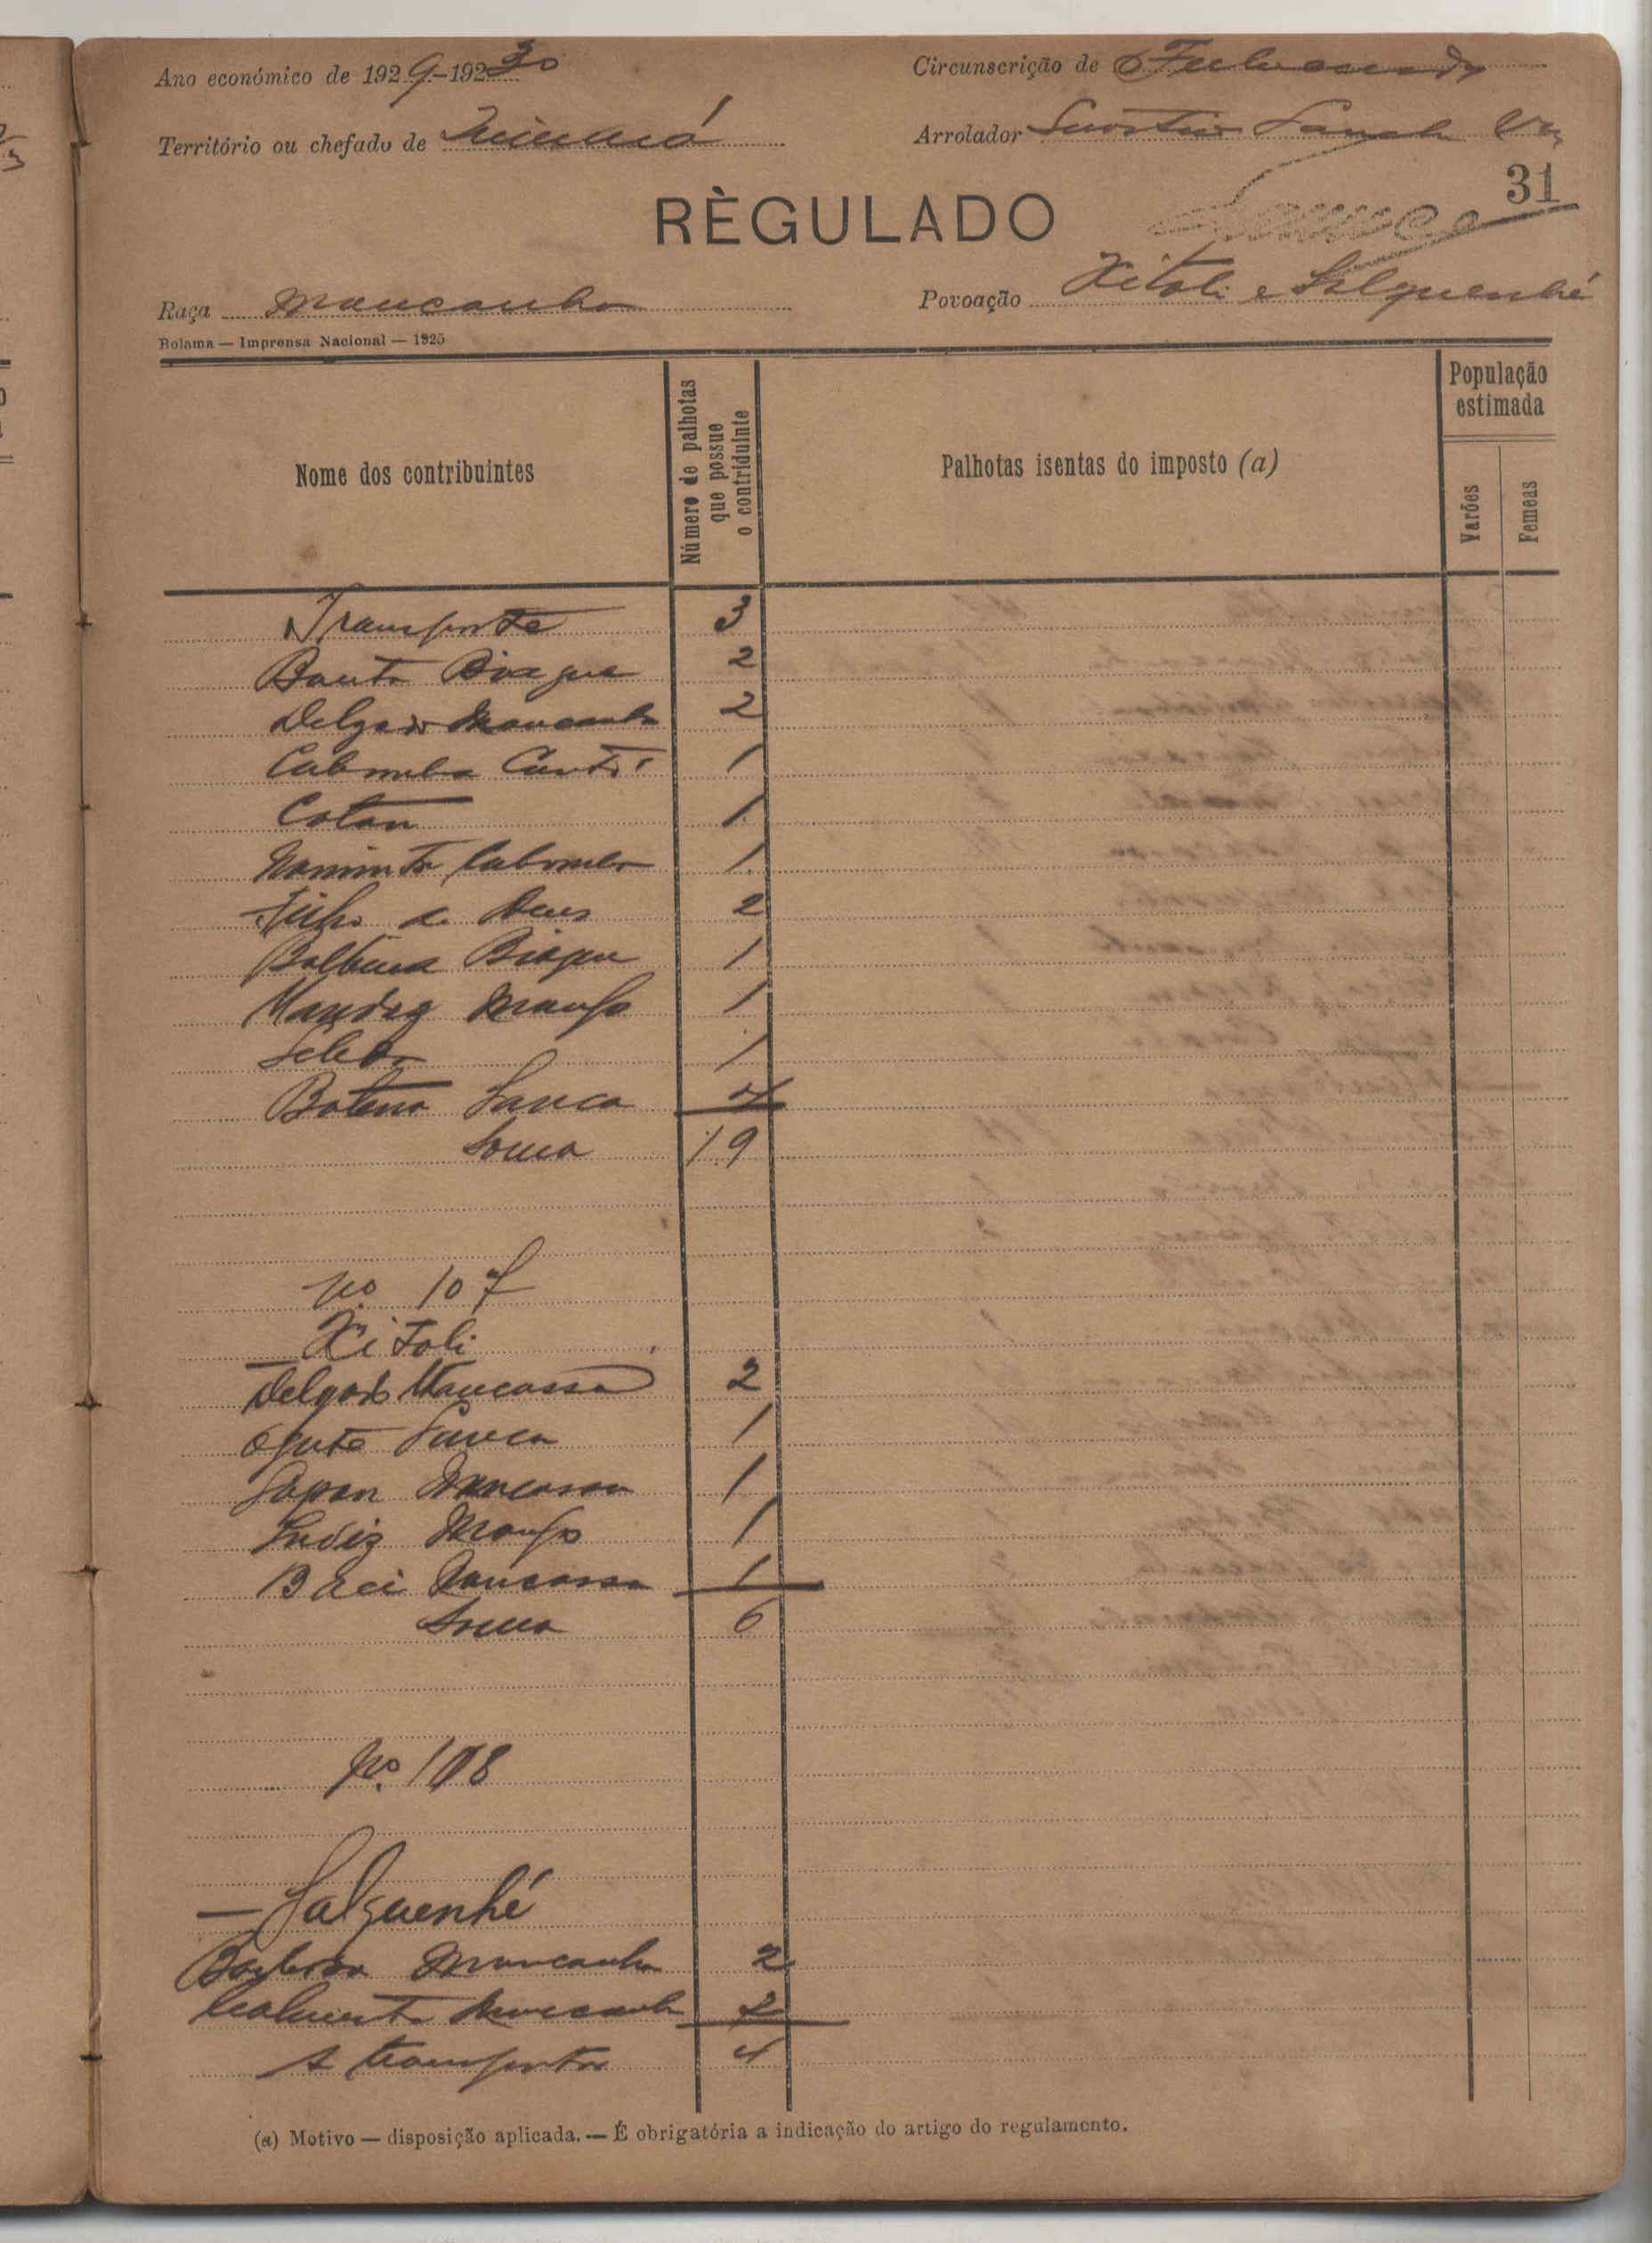 Ano económico de 1929-19230
Circunscrição de Fulacunda
Território ou chefado de Quinará
Arrolador
31
RÈGULADO
Raça Mancanha
Povoação Xitoli e Salguenhé
Bolama — Imprensa Nacional — 1925
Nome dos contribuintes
Número de palhotas que possue o contriduinte
Palhotas isentas do imposto (a)
População estimada
Varões
Femeas
Transporte 3
Bautr Biague 2
Delgado Mancanha 2
Cabomba 1
Cotan 1
Cabomba 1
Filho de Deus 2
Balbina Biague 1
Mandig Manfo 1
1
Batena Sanca 4
Soma 19
No 107
Xitoli
Delgado Mancassa 2
Sanca 1
Sapan Mancassa 1
Indiz Manfo 1
Baci Mancassa 1
Soma 6
No. 108
— Salguenhé
Barbosa Mancanha 2
Mancanha 2
A transportar 4
(a) Motivo — disposição aplicada. — É obrigatória a indicação do artigo do regulamento.